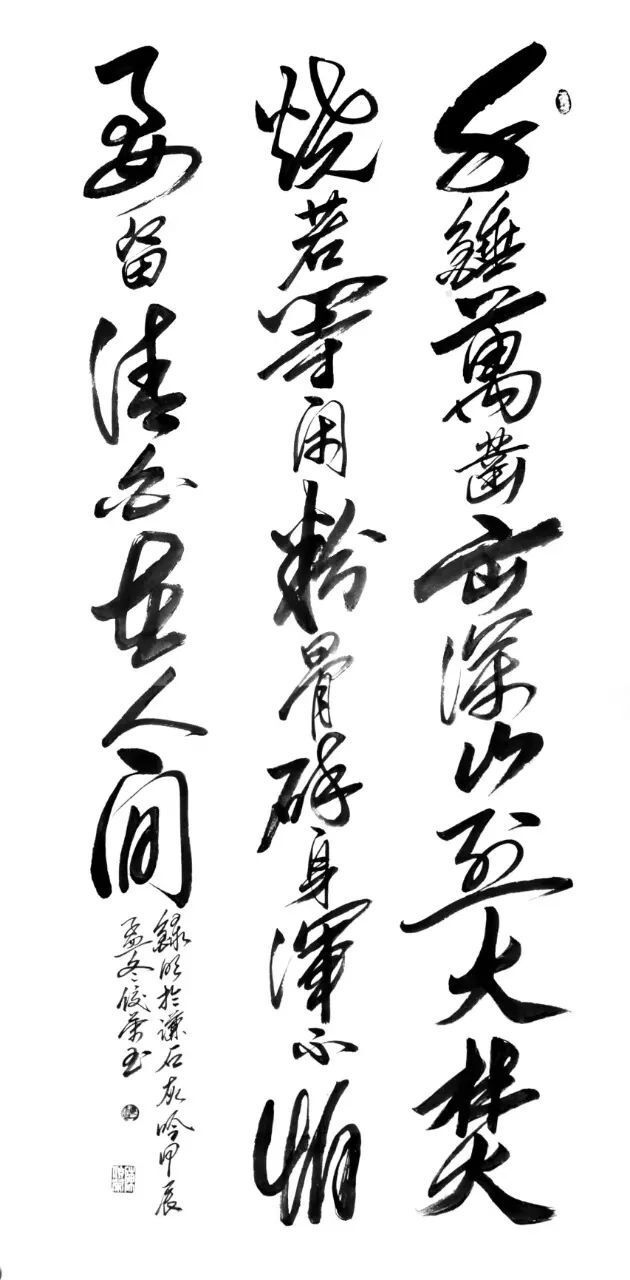 千錘萬凿出深山烈火焚
烧若等闲粉骨碎身渾不怕
要留清白在人间
錄明於謙石灰吟甲辰
孟冬